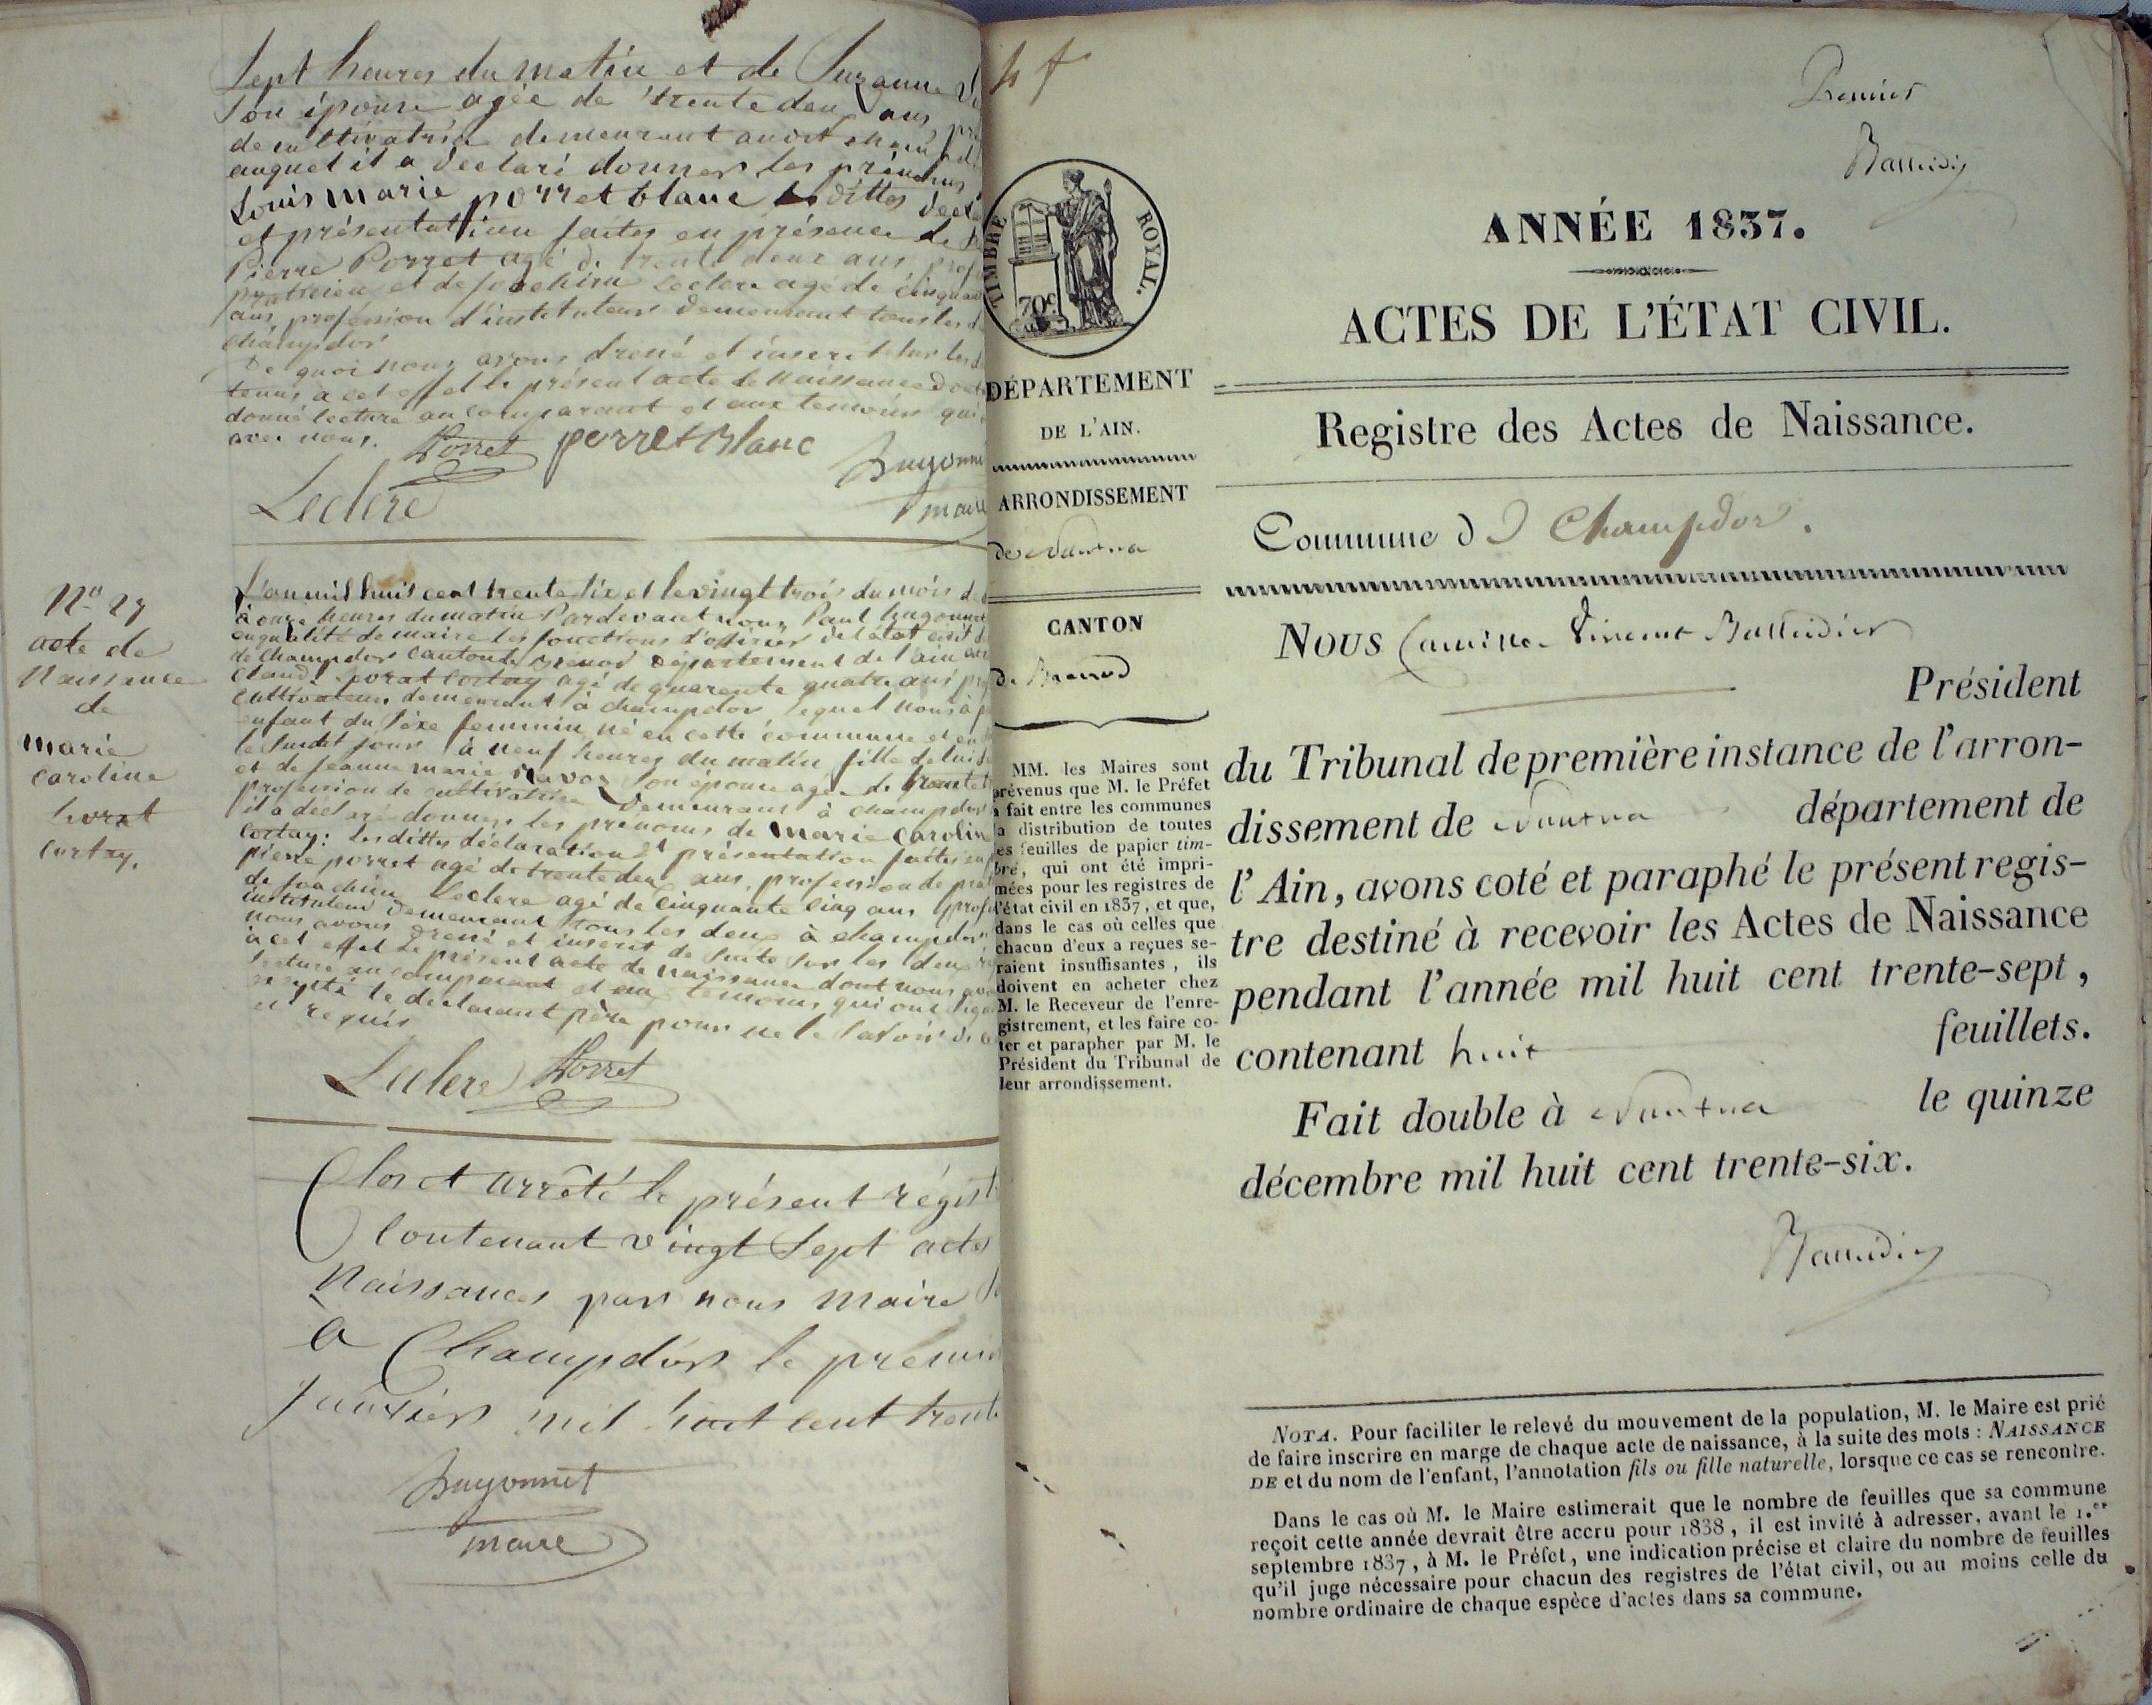 Sept heures du matin et de Suzanne
son épouse agée de trente deux ans
de cultivatrice demeurant audit
auquel il a déclaré donner les prénoms
Louis Marie porret blanc les dittes
et présentation faites en présence de
Pierre Porret agé de trente deux ans
praticien et de Joachim Leclerc agé de cinquante
ans profession d'instituteur demeurant tous les
champdor
De quoi nous avons dressé et inscrit sur les
tenus à cet effet le présent acte de Naissance
donné lecture au comparant et aux temoins qui
avec nous.
Porret perret Blanc
Leclerc
maire
N.o 27
acte de
Naissance
de
Marie
Caroline
Cortay.
L'an mil huit cent trente six et le vingt trois du mois de
à onze heures du matin Pardevant nous Paul
en qualité de maire les fonctions d'officier de l'état civil
de Champdor Canton de Brenod département de l'ain
Claude Cortay agé de quarente quatre ans
cultivateur demeurant à champdor lequel nous à
enfant du sexe feminin né en cette commune et
le susdit jour à neuf heures du matin fille de lui
et de Jeanne Marie son épouse agée de trente
profession de cultivatrice demeurant à champdor
il a déclaré donner les prénoms de Marie Caroline
Cortay: les dittes déclaration et présentation faites en
pierre porret agé de trente deux ans, profession de
de Joachim Leclerc agé de cinquante cinq ans
instituteur demeurant tous les deux à champdor
nous avons dressé et inscrit de suite sur les deux
à cet effet le présent acte de naissance dont nous
lecture au comparant et aux temoins qui ont
le déclarant père pour ne le savoir de ce
et requis
Leclerc Porret
Clos et arrêté le présent régist
Contenant vingt Sept actes
Naissances par nous Maire
à Champdor le premier
Janvier mil huit cent trente
maire
Premier
ANNÉE 1837.
ACTES DE L'ÉTAT CIVIL.
Registre des Actes de Naissance.
TIMBRE ROYAL.
70c
DÉPARTEMENT
DE L'AIN.
ARRONDISSEMENT
de Nantua
CANTON
de Brenod
MM. les Maires sont
prévenus que M. le Préfet
a fait entre les communes
la distribution de toutes
les feuilles de papier tim-
bré, qui ont été impri-
mées pour les registres de
l'état civil en 1837, et que,
dans le cas où celles que
chacun d'eux a reçues se-
raient insuffisantes, ils
doivent en acheter chez
M. le Receveur de l'enre-
gistrement, et les faire co-
ter et parapher par M. le
Président du Tribunal de
leur arrondissement.
Commune de Champdor.
NOUS Camille Vincent
Président
du Tribunal de première instance de l'arron-
dissement de Nantua département de
l'Ain, avons coté et paraphé le présent regis-
tre destiné à recevoir les Actes de Naissance
pendant l'année mil huit cent trente-sept,
contenant huit feuillets.
Fait double à Nantua le quinze
décembre mil huit cent trente-six.
NOTA. Pour faciliter le relevé du mouvement de la population, M. le Maire est prié
de faire inscrire en marge de chaque acte de naissance, à la suite des mots : NAISSANCE
DE et du nom de l'enfant, l'annotation fils ou fille naturelle, lorsque ce cas se rencontre.
Dans le cas où M. le Maire estimerait que le nombre de feuilles que sa commune
reçoit cette année devrait être accru pour 1838, il est invité à adresser, avant le 1.er
septembre 1837, à M. le Préfet, une indication précise et claire du nombre de feuilles
qu'il juge nécessaire pour chacun des registres de l'état civil, ou au moins celle du
nombre ordinaire de chaque espèce d'actes dans sa commune.